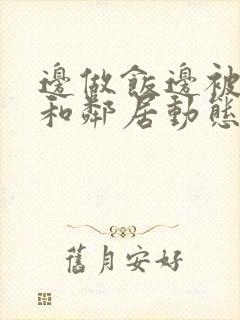 邊做飯邊被
和鄰居動態
舊月安好